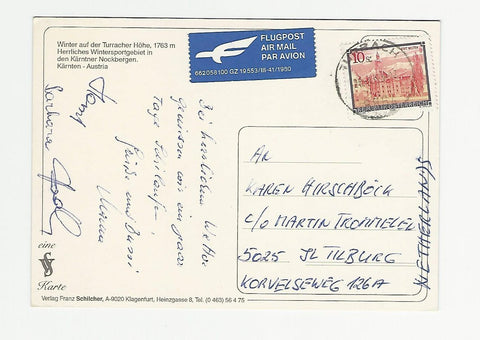 Winter auf der Turracher Höhe, 1763 m
Herrliches Wintersportgebiet in
den Kärntner Nockbergen.
Kärnten - Austria
FLUGPOST
AIR MAIL
PAR AVION
662058100 GZ 19553/III-41/1980
10
REPUBLIK ÖSTERREICH
Bei herrlichem Wetter
genießen wir ein paar
Tage Schilaufen!
Grüße und Bussi
Barbara
AN
KAREN HIRSCHBÖCK
C/O MARTIN TROMMELEN
5025 JL TILBURG
KORVELSEWEG 126A
NETHERLANDS
eine
Karte
Verlag Franz Schilcher, A-9020 Klagenfurt, Heinzgasse 8, Tel. (0 463) 56 4 75